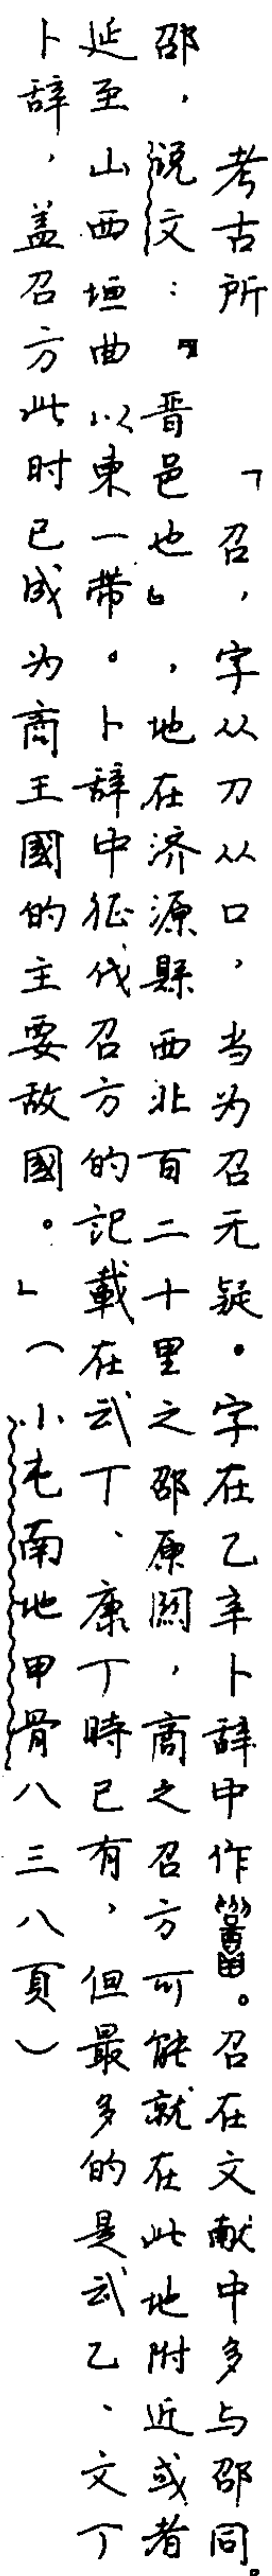 考古所　「召，字从刀从口，当为召无疑。字在乙辛卜辞中作。召在文献中多与邵同。
邵，说文：『晋邑也』，地在济源縣西北百二十里之邵原関，商之召方可能就在此地附近或者
延至山西垣曲以東一带。卜辞中征伐召方的記載在武丁、康丁時已有，但最多的是武乙、文丁
卜辞，盖召方此时已成为商王國的主要敌國。」（小屯南地甲骨八三八頁）